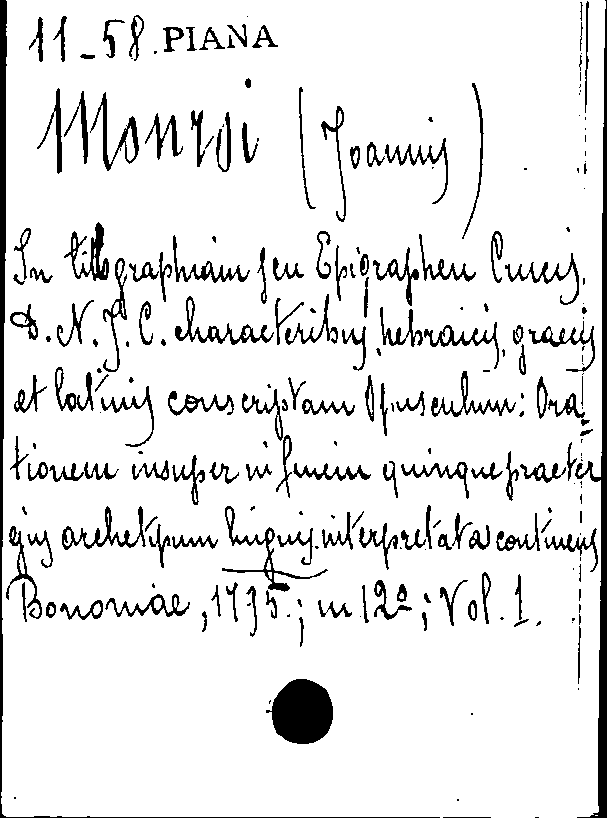 11-58. PIANA
Monroi (Joannis)
In titlographiam seu Epigraphen Crucis
D. N. J. C. characteribus hebraicis, graecis
et latinis conscriptam Opusculum: Ora=
tionem insuper in finem quinque praeter
ejus archetypum linguis interpretata continens
Bononiae, 1735.; in 12º; Vol. 1.